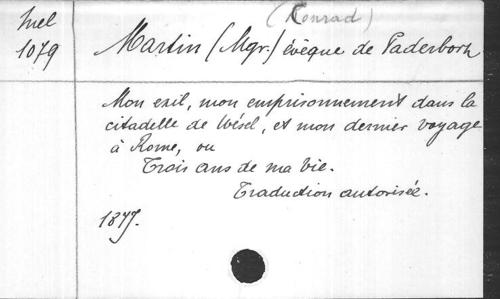 (Konrad)
Mel
1079
Martin (Mgr.) évêque de Paderborn
Mon exil, mon emprisonnement dans la
citadelle de Wésel, et mon dernier voyage
à Rome, ou
Trois ans de ma vie.
Traduction autorisée.
1877.